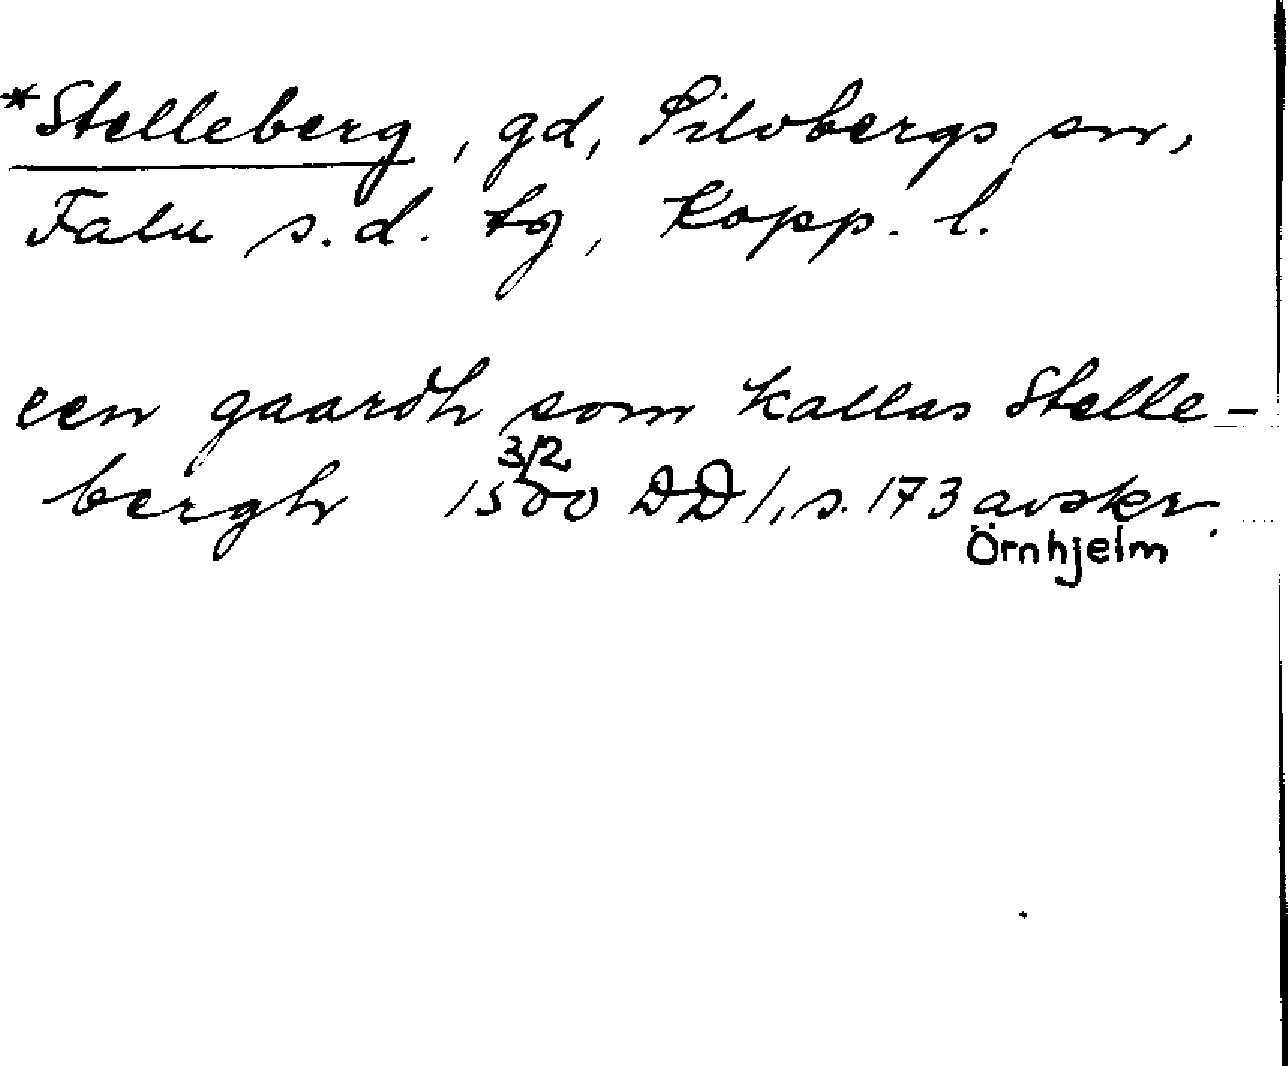 *Stelleberg, gd, Silvbergs sn,
Falu s.d. tg, Kopp. l.
een gaardh som kallas Stelle-
bergh 1500 3/2 DD 1, s. 173 avskr.
Örnhjelm